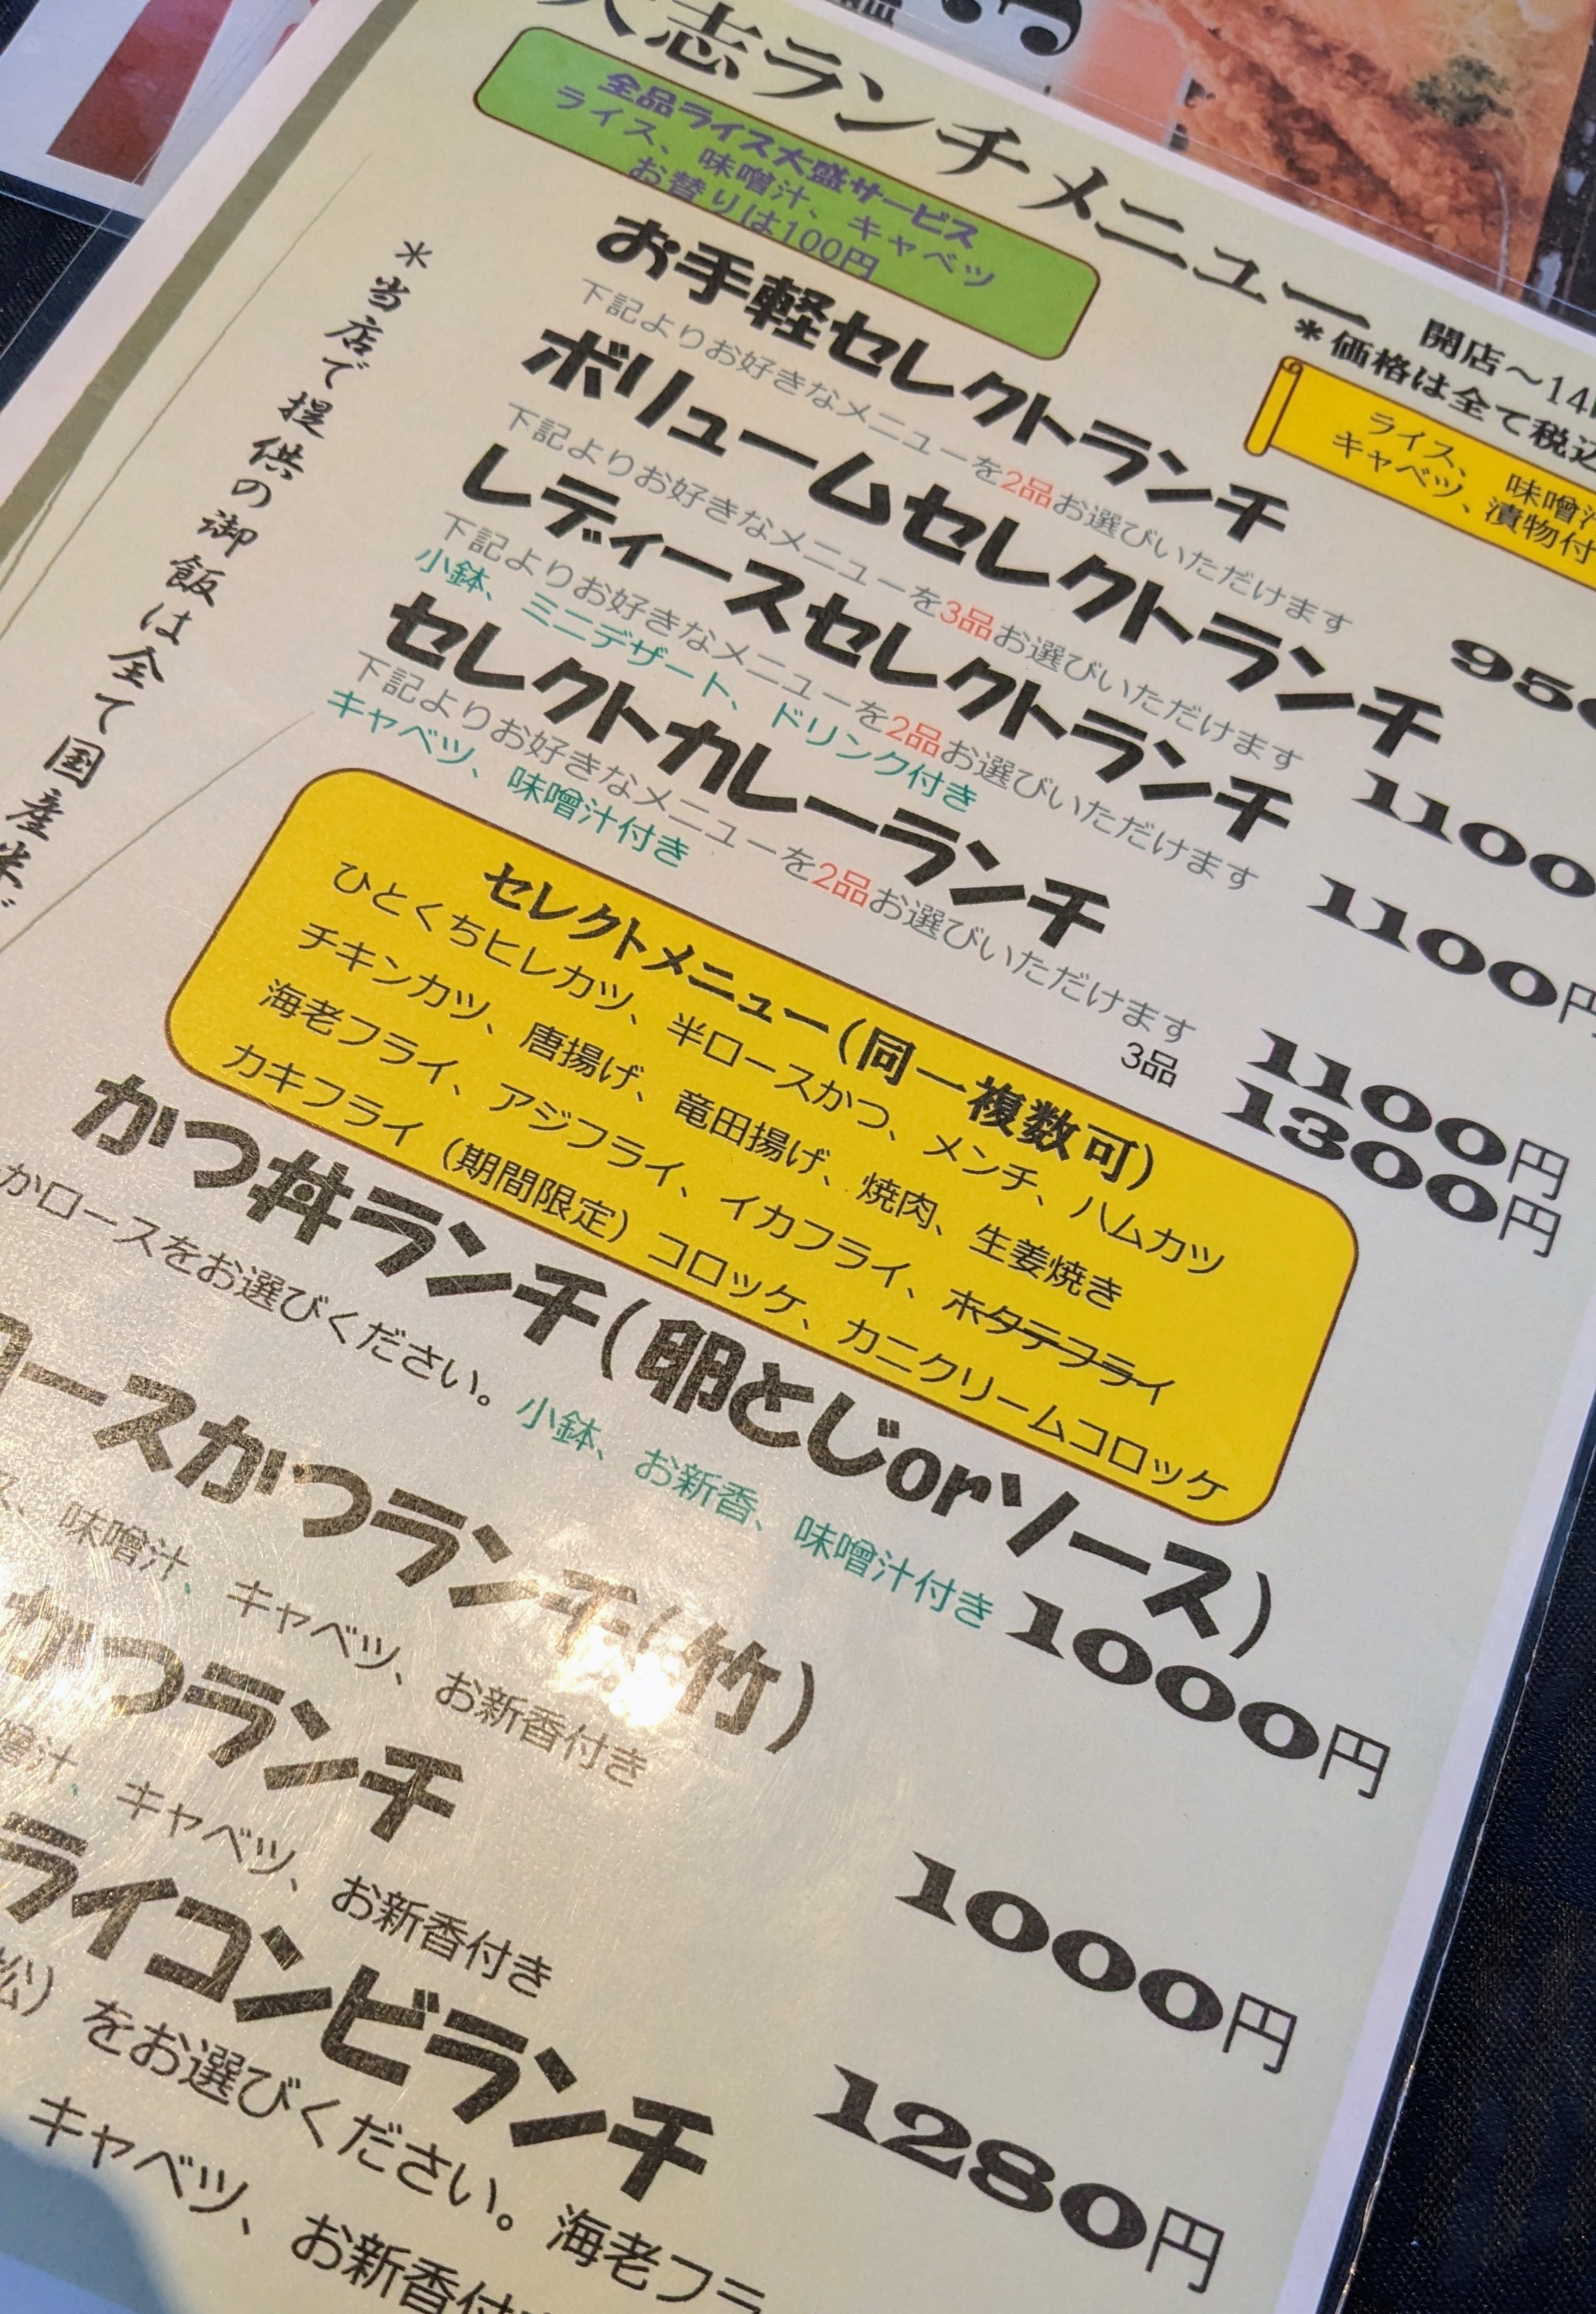 志ランチメニュー
全品ライス大盛サービス
ライス、味噌汁、キャベツ
お替りは100円
開店～14
＊価格は全て税込
ライス、味噌汁
キャベツ、漬物付
＊当店で提供の御飯は全て国産米
お手軽セレクトランチ
下記よりお好きなメニューを2品お選びいただけます
950
ボリュームセレクトランチ
下記よりお好きなメニューを3品お選びいただけます
1100
レディースセレクトランチ
下記よりお好きなメニューを2品お選びいただけます
小鉢、ミニデザート、ドリンク付き
1100円
セレクトカレーランチ
下記よりお好きなメニューを2品お選びいただけます
1100円
キャベツ、味噌汁付き
3品 1300円
セレクトメニュー(同一複数可)
ひとくちヒレカツ、半ロースかつ、メンチ、ハムカツ
チキンカツ、唐揚げ、竜田揚げ、焼肉、生姜焼き
海老フライ、アジフライ、イカフライ、ホタテフライ
カキフライ（期間限定）コロッケ、カニクリームコロッケ
かつ丼ランチ(卵とじorソース)
かロースをお選びください。小鉢、お新香、味噌汁付き
1000円
ロースかつランチ(竹)
ス、味噌汁、キャベツ、お新香付き
1000円
かつランチ
噌汁、キャベツ、お新香付き
1280円
ライコンビランチ
松）をお選びください。海老フラ
キャベツ、お新香付